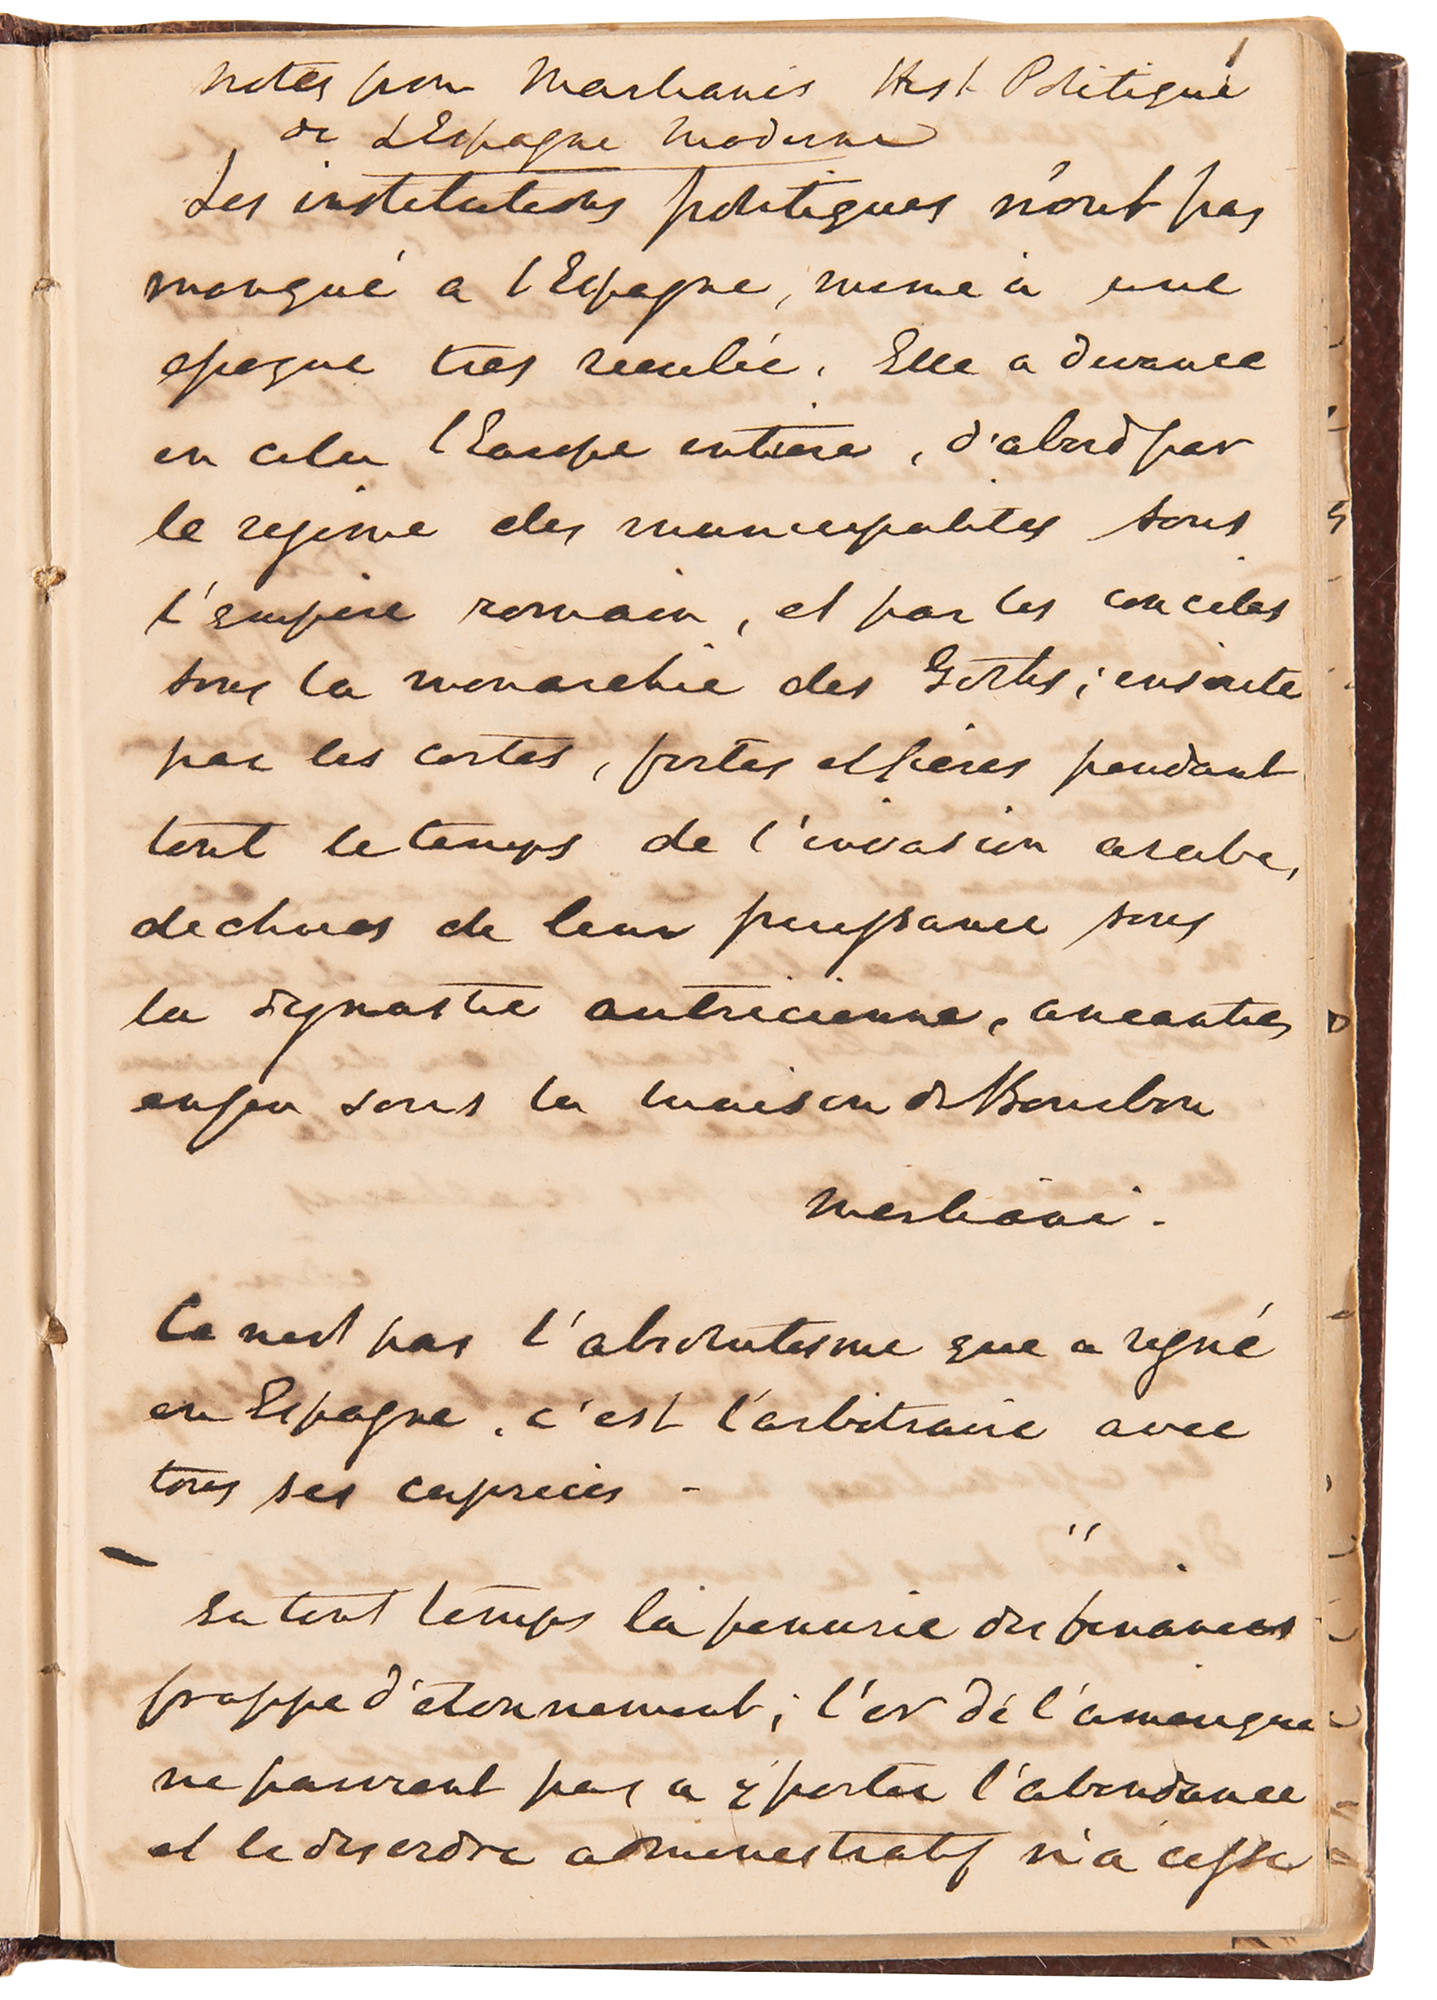 Notes from Marliani's Hist Politique
de L'Espagne Moderne
Les institutions politiques n'ont pas
manqué a l'Espagne, meme à une
epoque tres reculée. Elle a devancé
en cela l'Europe entière, d'abord par
le regime des municipalités sous
l'Empire romain, et par les conciles
sous la monarchie des Goths; ensuite
par les cortes, fortes et fières pendant
tout le temps de l'invasion arabe,
dechues de leur puissance sous
la dynastie autricienne, aneanties
enfin sous la maison de Bourbon
Marliani.
Ce nest pas l'absolutisme que a regné
en Espagne, c'est l'arbitraire avec
tous ses caprices -
"
En tout temps la penurie des finances
frappe d'etonnement; l'or de l'amerique
ne parvient pas a y porter l'abondance
et le desordre administratif n'a cessé